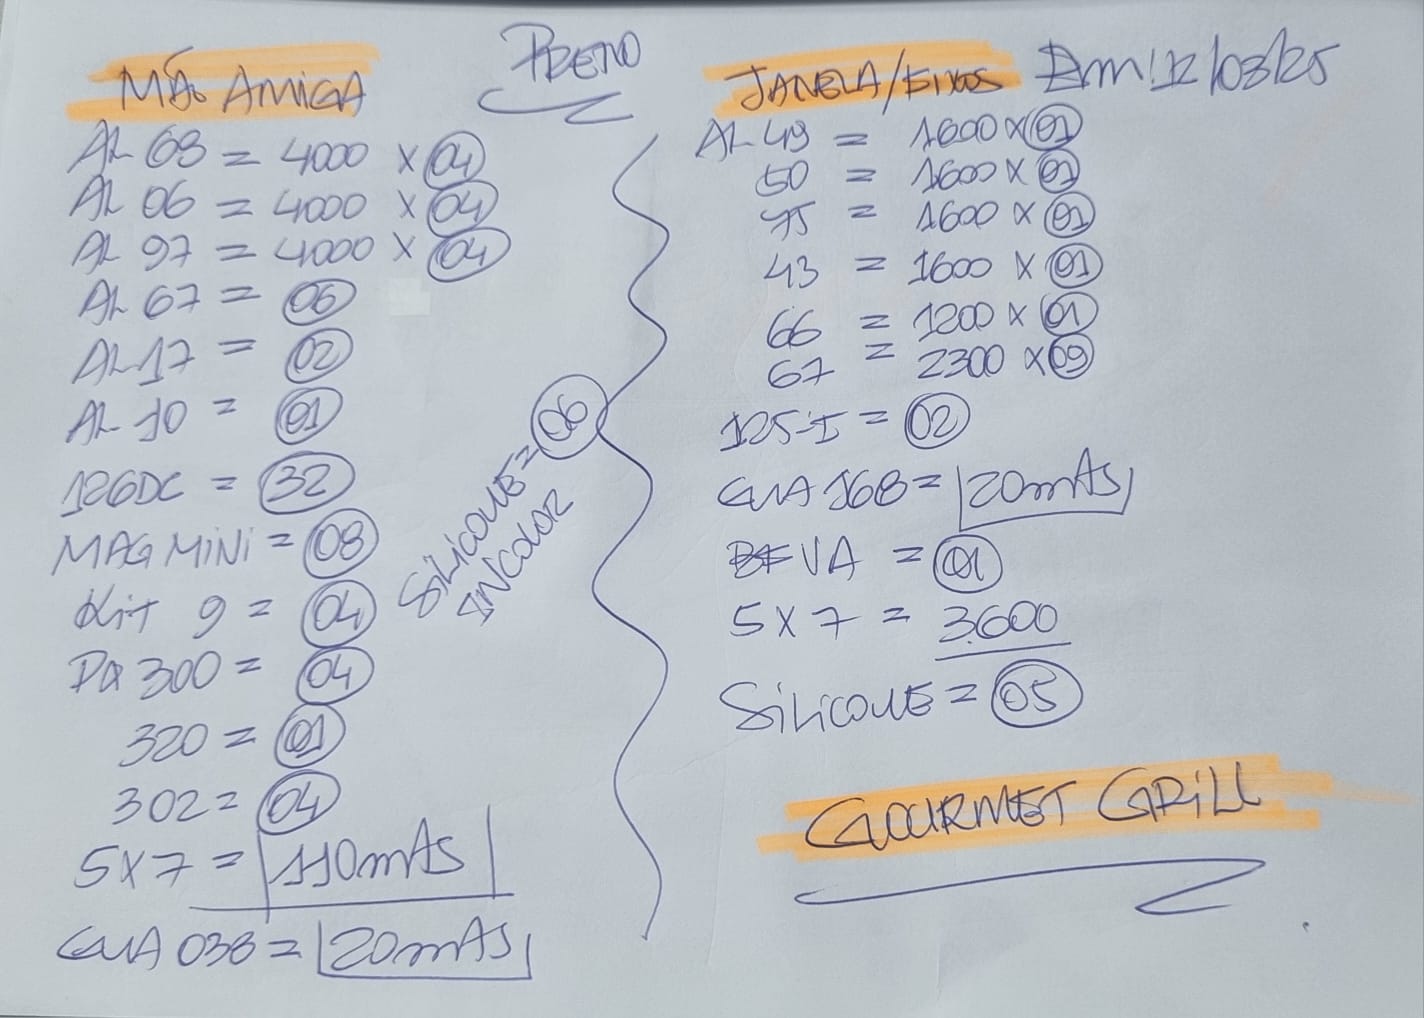 PRETO
MÃO AMIGA
AL 68 = 4000 X 04
AL 06 = 4000 X 04
AL 97 = 4000 X 04
AL 67 = 06
AL 17 = 02
AL 10 = 01
126DC = 32
MAG MINI = 08
Kit 9 = 04
PQ 300 = 04
320 = 01
302 = 04
5X7 = 110mts
GUA 038 = 20mts
SILICONE = 06
INCOLOR
JANELA/FIXOS Em: 12/03/25
AL 49 = 1600 X 01
50 = 1600 X 01
75 = 1600 X 01
43 = 1600 X 01
66 = 1200 X 01
67 = 2300 X 09
125-I = 02
GUA 168 = 20mts
VA = 01
5X7 = 3.600
SILICONE = 05
GOURMET GRILL